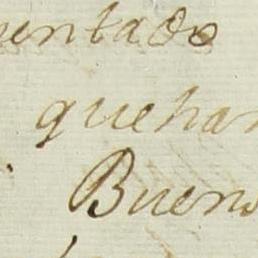 entado
que han
Bueno